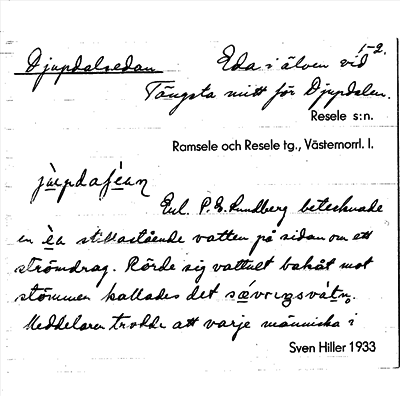 1-2.
Djupdalsedan Eda i älven vid
Tängsta mitt för Djupdalen.
Resele s:n.
Ramsele och Resele tg., Västernorrl. l.
Enl. P. E. Lundberg betecknade
en èa stillastående vatten på sidan om ett
strömdrag. Rörde sig vattnet bakåt mot
strömmen kallades det
Meddelaren trodde att varje människa i
Sven Hiller 1933